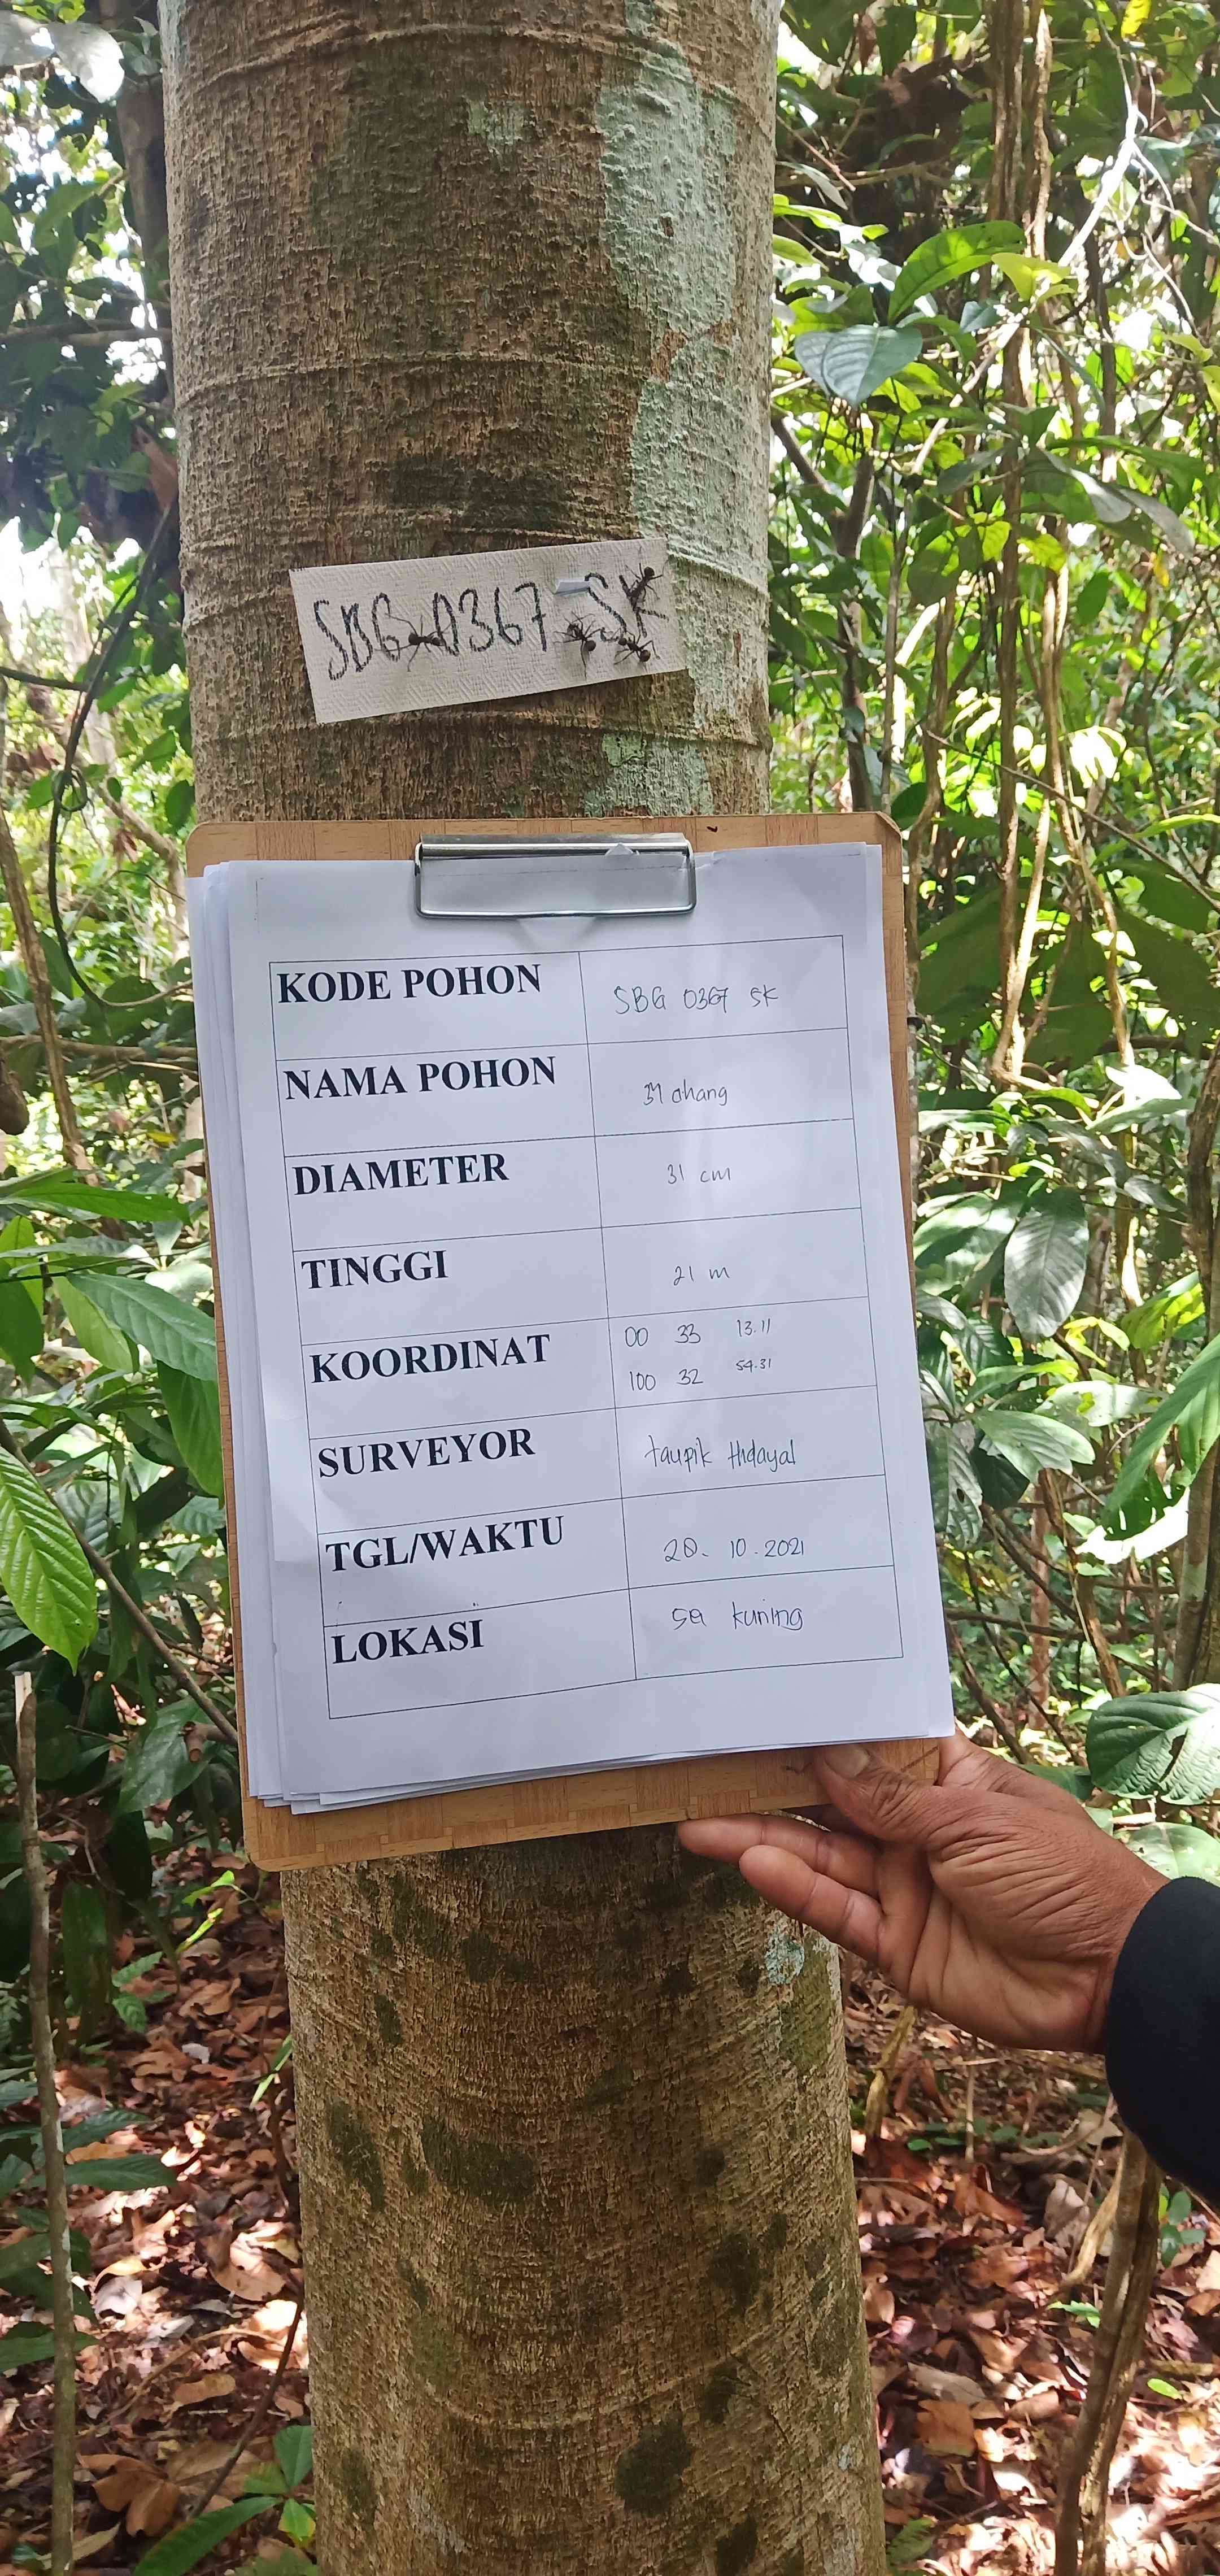 SBG 0367 SK
KODE POHON SBG 0367 SK
NAMA POHON
DIAMETER 31 cm
TINGGI 21 m
KOORDINAT 00 33 13.11
100 32 54.31
SURVEYOR taupik Hidayal
TGL/WAKTU 20. 10. 2021
LOKASI kuning